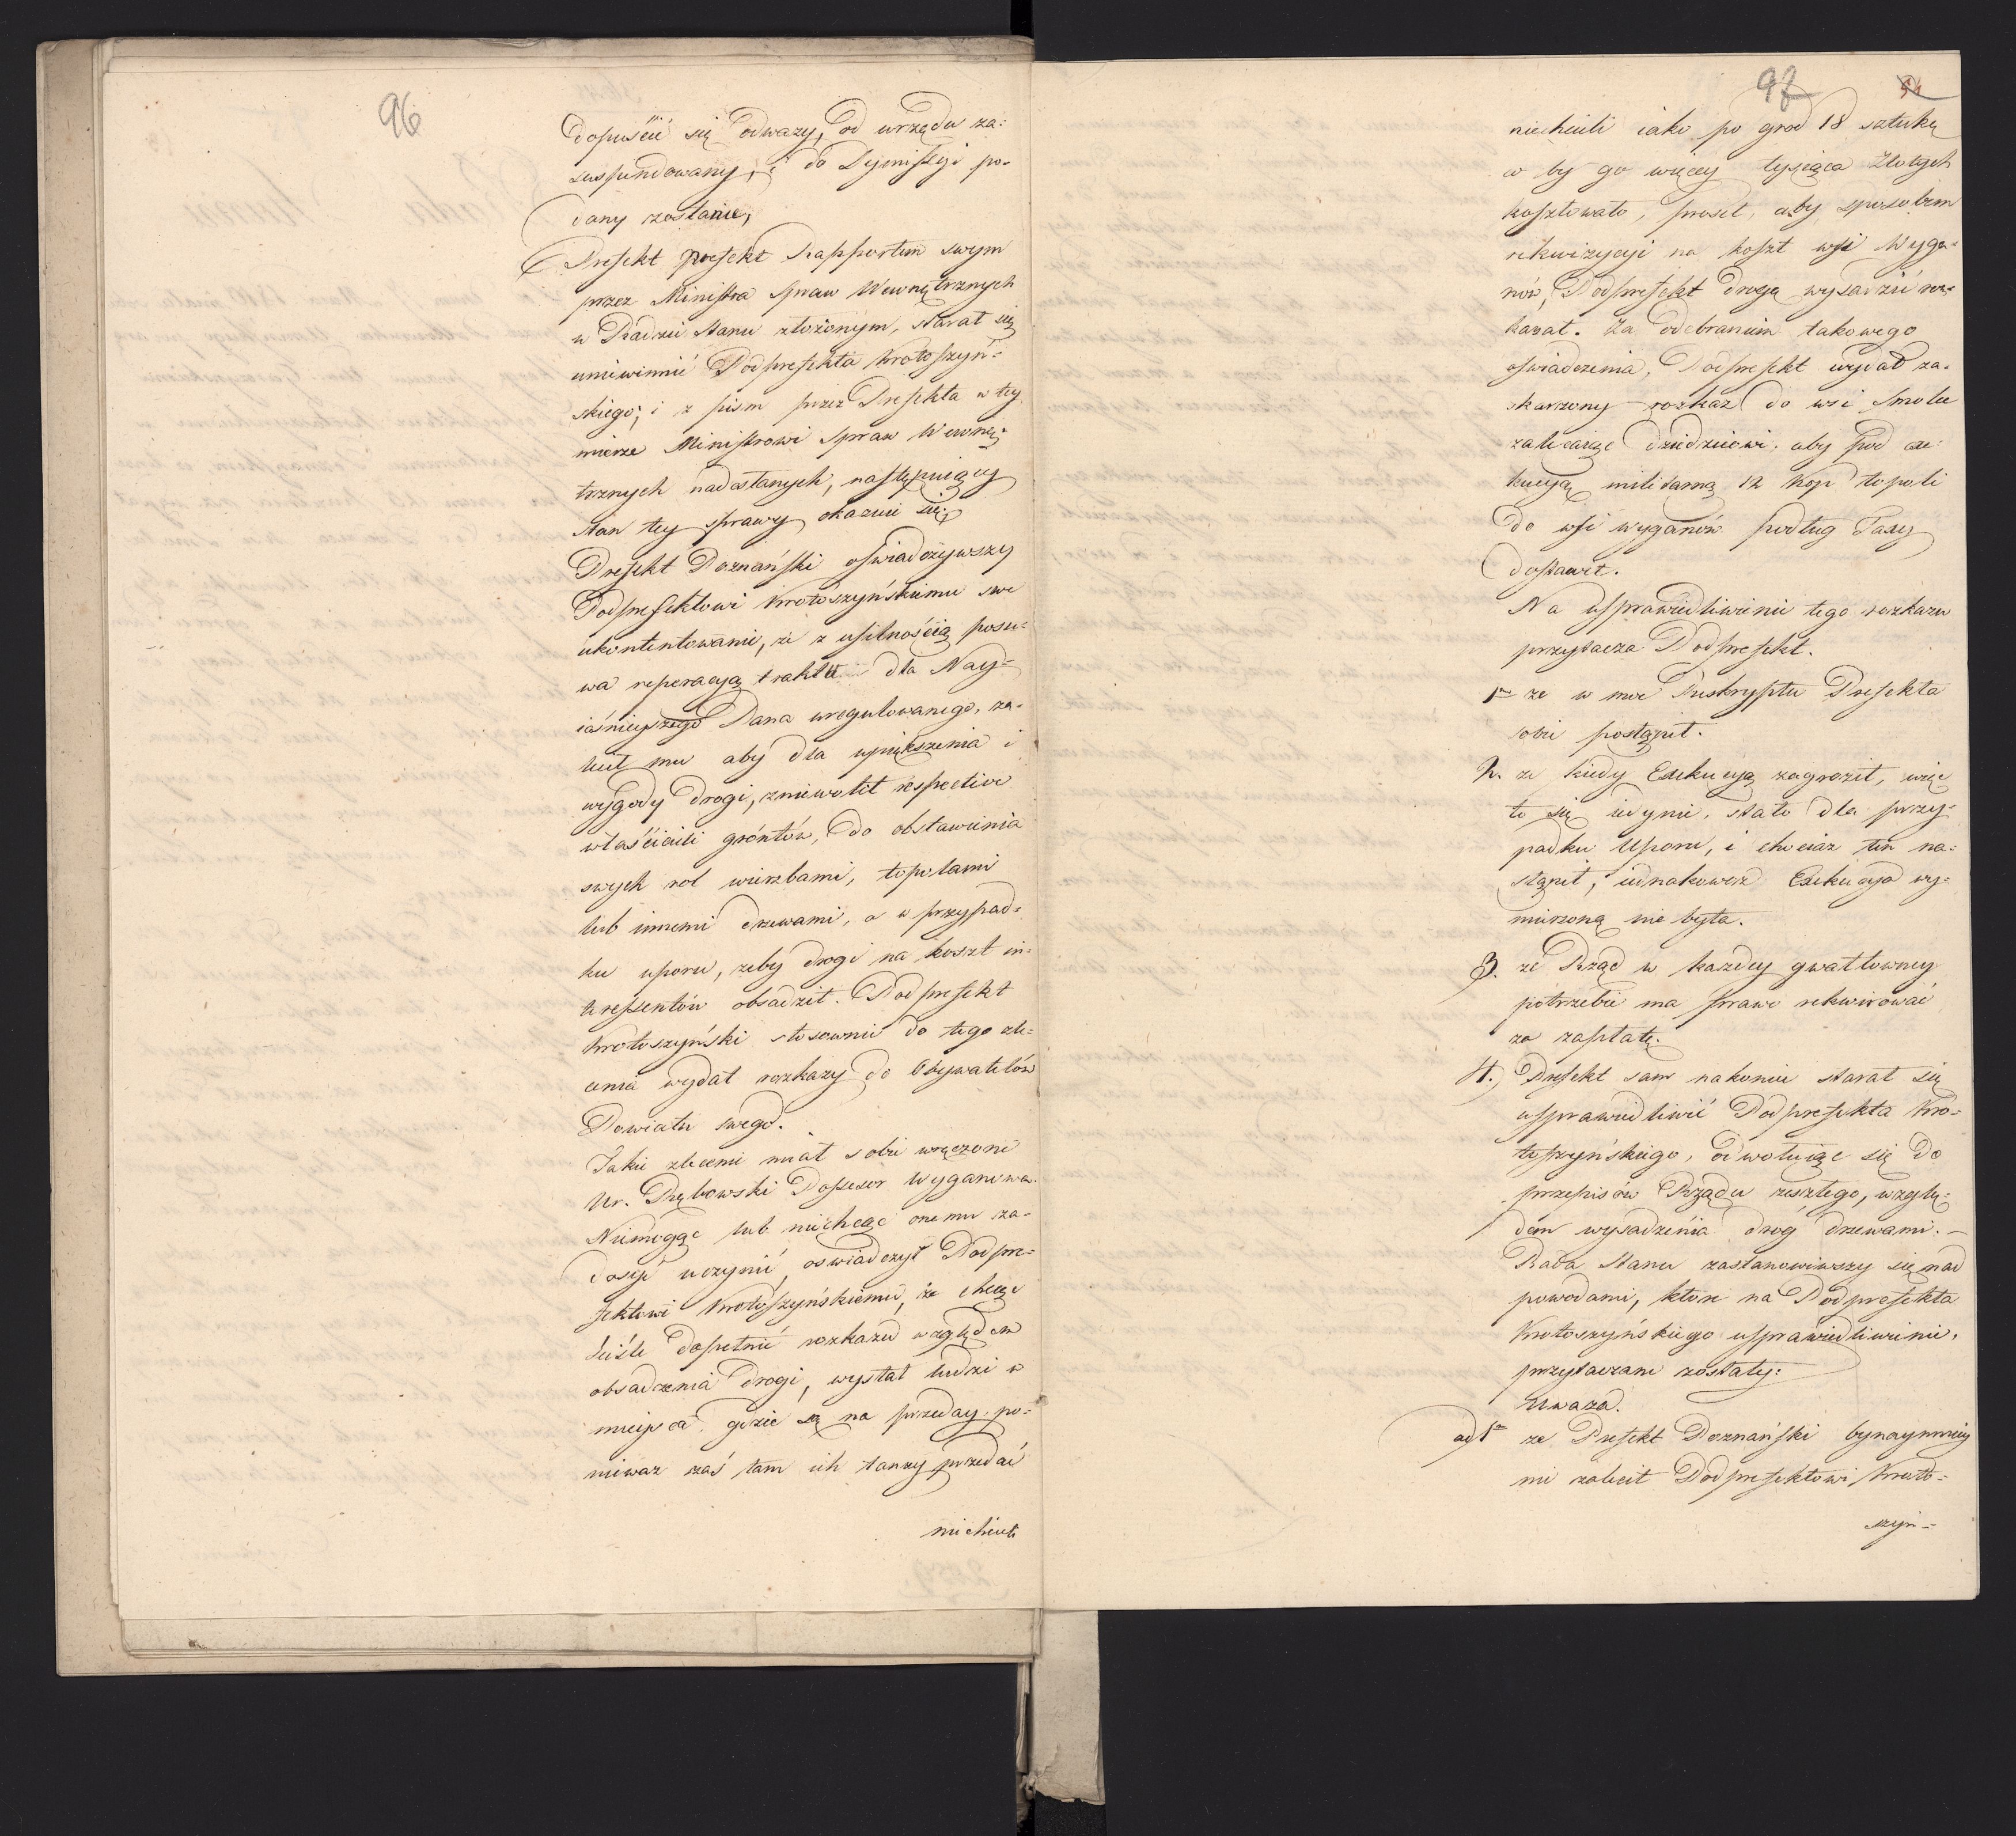 96
dopuścić się odważy, od urzędu za:
suspendowany, i do Dymissyi po-
dany zostanie,
Prefekt prefekt Rapportem swym
przez Ministra Spraw Wewnętrznych
w Radzie Stanu złożonym, starał się
uniewinnić Podprefekta Krotoszyń-
skiego; i z pism przez Prefekta w tey
mierze Ministrowi Spraw Wewnę-
trznych nadesłanych, następuiący
stan tey sprawy okazuie się.
Prefekt Poznański oświadczywszy
Podprefektowi Krotoszyńskiemu swe
ukontentowanie, że z usilnością posu-
wa reperacyą traktu dla Nay-
iaśnieyszego Pana uregulowanego, za-
lecił mu aby dla upiększenia i
wygody drogi, zniewolił respective
właścicieli gróntów, do obstawienia
swych rol wierzbami, topolami
lub innemi drzewami, a w przypad-
ku uporu, żeby drogi na koszt in-
teressentów obsadził. Podprefekt
Krotoszyński stosownie do tego zle-
cenia wydał rozkazy do Obywatelów
Powiatu swego.
Jakie zlecenie miał sobie wręczone
Ur. Dębowski Possessor Wyganowa.
Niemogąc lub niechcąc onemu za-
dosyć uczynić, oswiadczył Podpre-
fektowi Krotoszyńskiemu, że chcąc
ściśle dopełnić rozkazu względem
obsadzenia drogi, wysłał ludzi w
mieysca gdzie są na przeday, po-
nieważ zaś tam ich taniey przedać
niechcieli
97
niechcieli iako po grod 18 sztukę
co by go więcey tysiąca Złotych
kosztowało, prosił, aby sposobem
rekwizycyi na koszt wsi Wyga-
nów, Podprefekt drogę wysadzić roz-
kazał. Za odebraniem takowego
oświadczenia, Podprefekt wydał za-
skarżony rozkaz do wsi Smolic
zalecaiąc dziedzicowi, aby pod exe-
kucyą militarną 12 kop topoli
do wsi Wyganów podług Taxy
dostawił.
Na usprawiedliwienie tego rozkazu
przytacza Podprefekt.
1mo że w moc Reskryptu Prefekta
sobie postąpił.
2. że kiedy Exekucyą zagroził, więc
to się iedynie, stało dla przy-
padku Uporu, i chociaż ten na-
stąpił, iednakowoż Exekucya wy-
mierzoną nie była.
3. że Rząd w każdey gwałtowney
potrzebie ma prawo rekwirować
za zapłatę.
4.) Prefekt sam nakoniec starał się
usprawiedliwić Podprefekta Kro-
toszyńskiego, odwołuiąc się do
przepisów Rządu zeszłego, wzglę-
dem wysadzenia dróg drzewami. —
Rada Stanu zastanowiwszy się nad
powodami, które na Podprefekta
Krotoszyńskiego usprawiedliwienie,
przytaczane zostały:
Uważa.
ad 1m że Prefekt Poznański bynaymniey
nie zalecił Podprefektowi Kroto-
szyń-